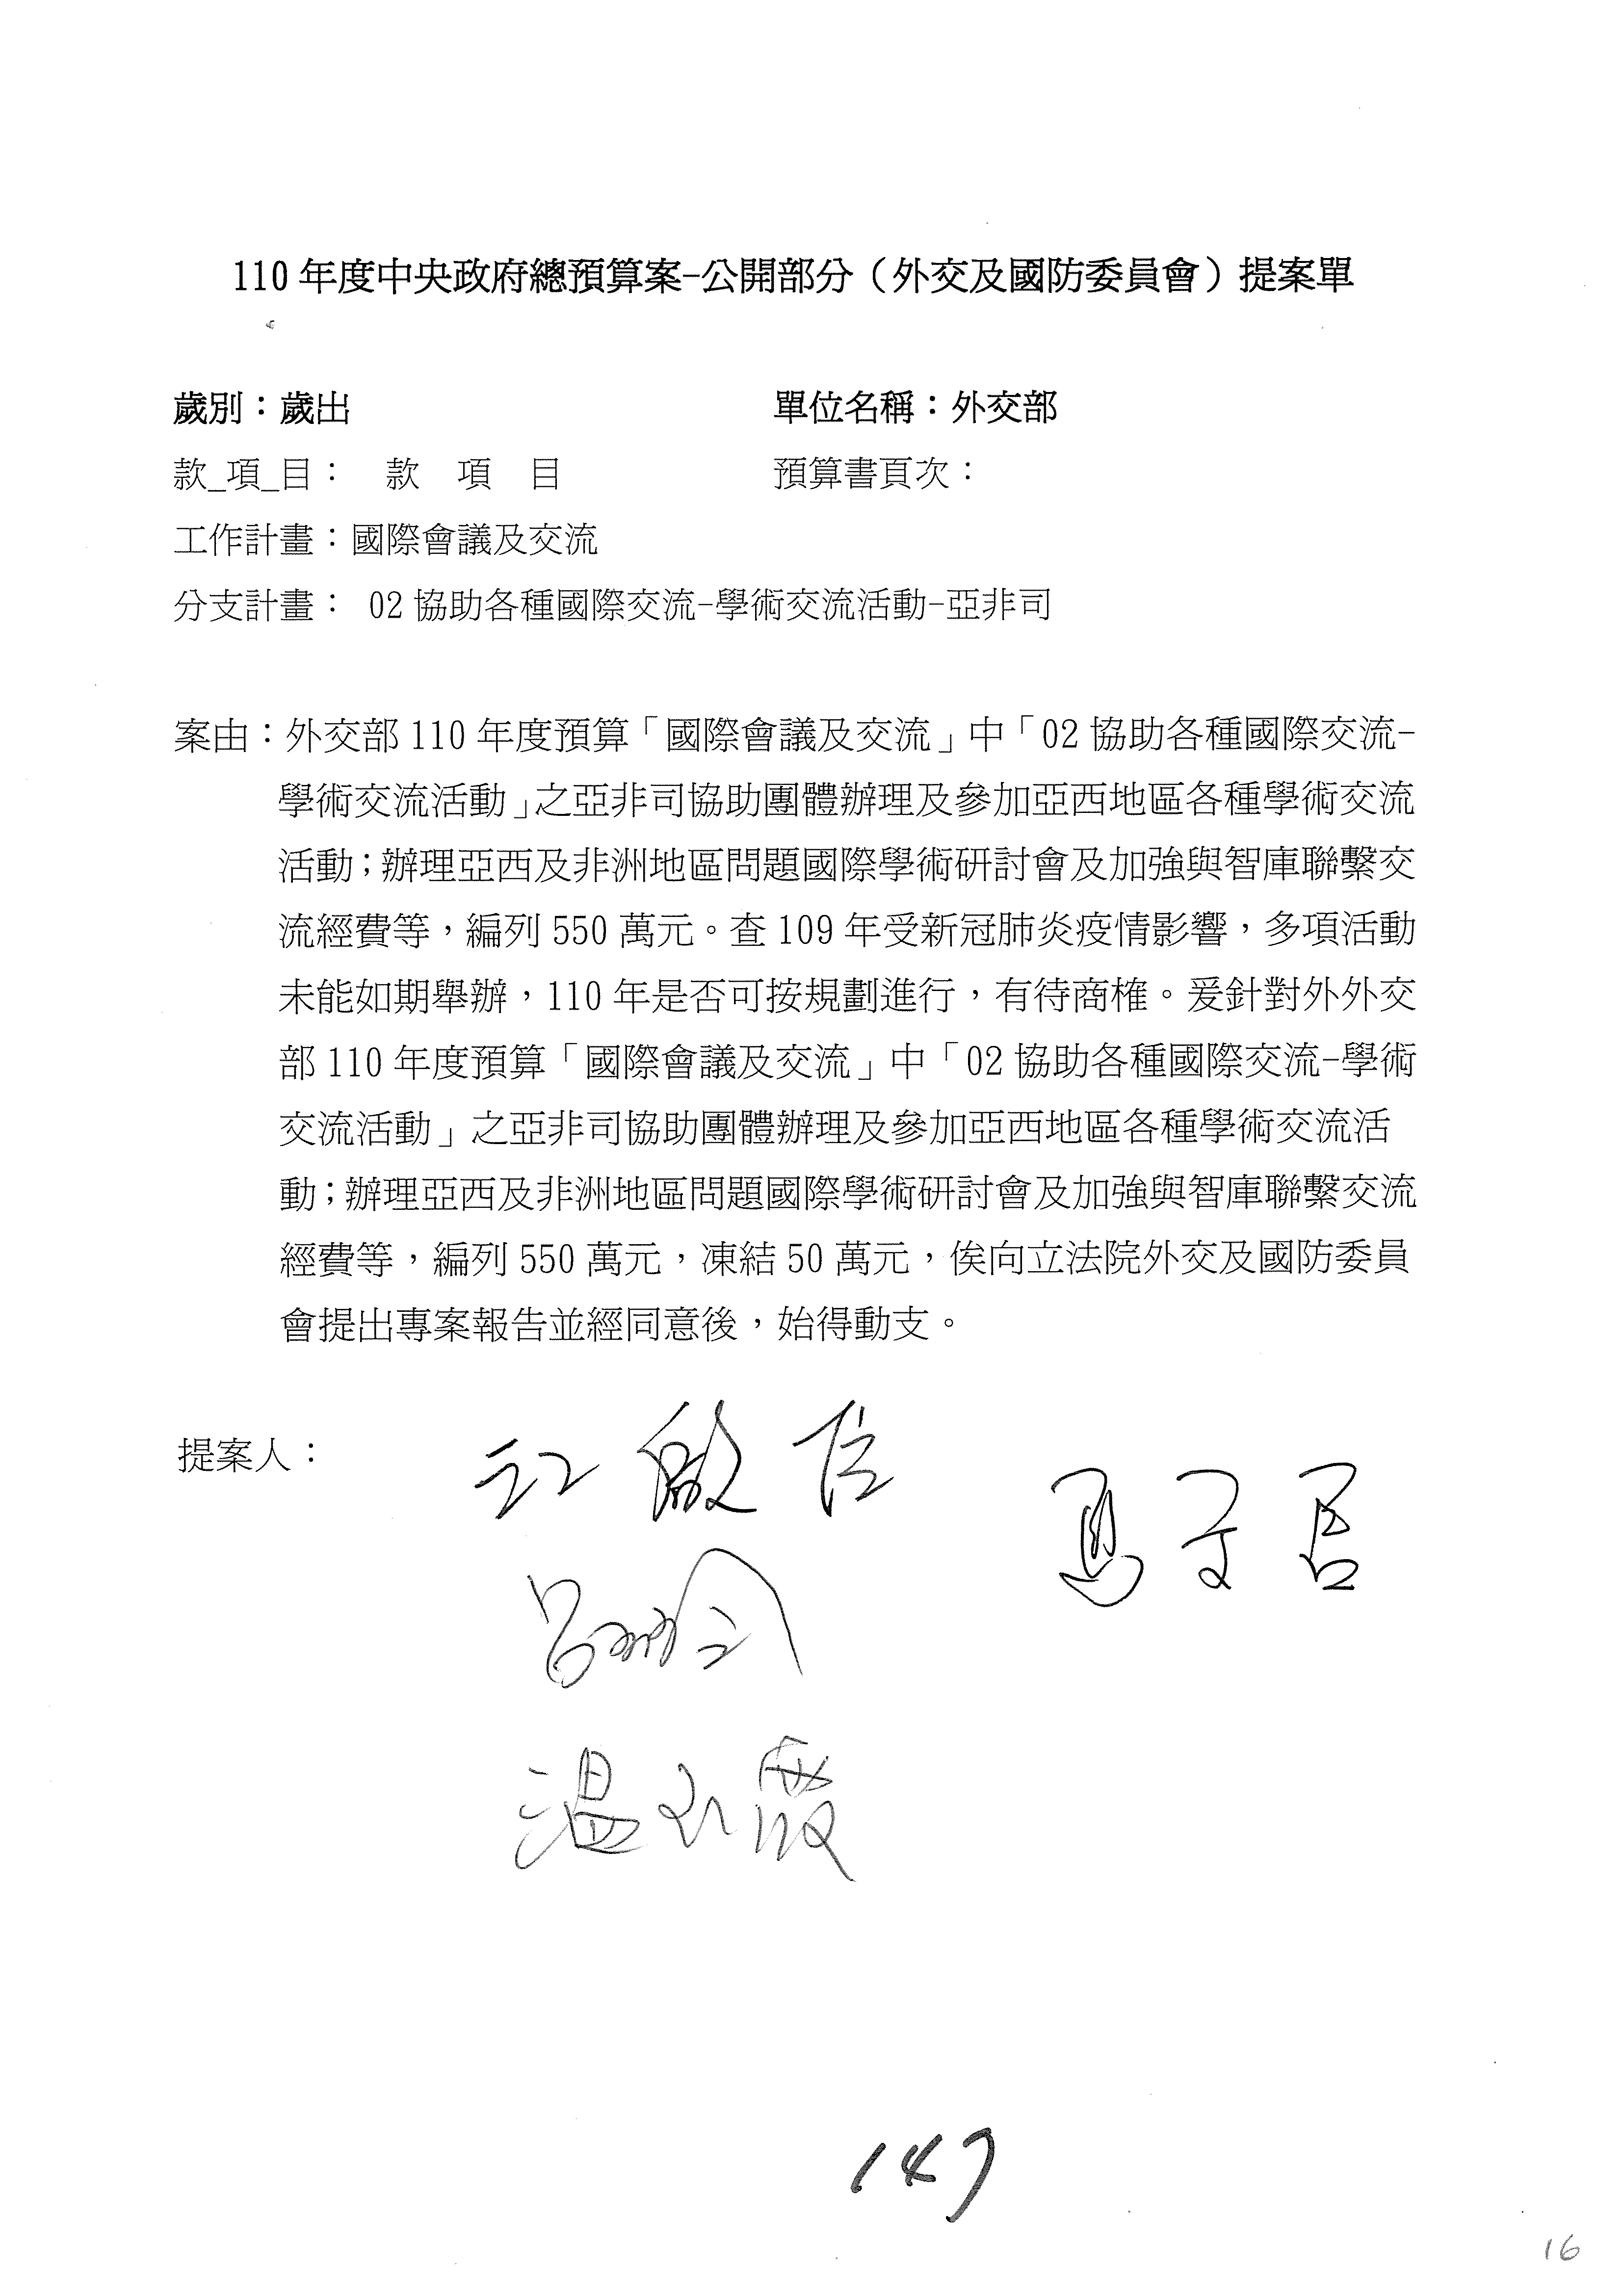 110 年度中央政府總預算案-公開部分（外交及國防委員會）提案單
歲別：歲出 單位名稱：外交部
款_項_目： 款 項 目 預算書頁次：
工作計畫：國際會議及交流
分支計畫： 02 協助各種國際交流-學術交流活動-亞非司
案由：外交部 110 年度預算「國際會議及交流」中「02 協助各種國際交流-
學術交流活動」之亞非司協助團體辦理及參加亞西地區各種學術交流
活動；辦理亞西及非洲地區問題國際學術研討會及加強與智庫聯繫交
流經費等，編列 550 萬元。查 109 年受新冠肺炎疫情影響，多項活動
未能如期舉辦，110 年是否可按規劃進行，有待商榷。爰針對外外交
部 110 年度預算「國際會議及交流」中「02 協助各種國際交流-學術
交流活動」之亞非司協助團體辦理及參加亞西地區各種學術交流活
動；辦理亞西及非洲地區問題國際學術研討會及加強與智庫聯繫交流
經費等，編列 550 萬元，凍結 50 萬元，俟向立法院外交及國防委員
會提出專案報告並經同意後，始得動支。
提案人：
江啟臣
馬文君
呂玉玲
溫玉霞
147
16